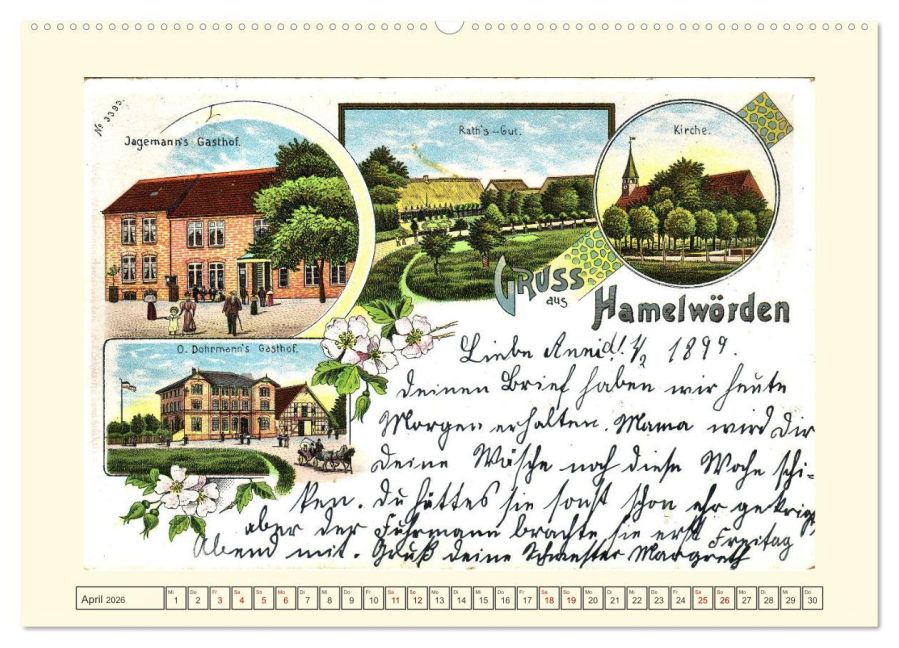 No 3393.
Jagemann's Gasthof.
Rath's-Gut.
Kirche.
GRUSS
aus
Hamelwörden
O. Dohrmann's Gasthof.
Liebe Anni d. 1/2 1899.
Deinen Brief haben wir heute
Morgen erhalten. Mama wird Dir
Deine Wäsche noch diese Woche schi-
ken. Du hättes sie sonst schon ehr gekrigt,
aber der Fuhrmann brachte sie erst Freitag
Abend mit. Gruß deine Schwester Margreth
April 2026
Mi Do Fr Sa So Mo Di Mi Do Fr Sa So Mo Di Mi Do Fr Sa So Mo Di Mi Do Fr Sa So Mo Di Mi Do
1 2 3 4 5 6 7 8 9 10 11 12 13 14 15 16 17 18 19 20 21 22 23 24 25 26 27 28 29 30